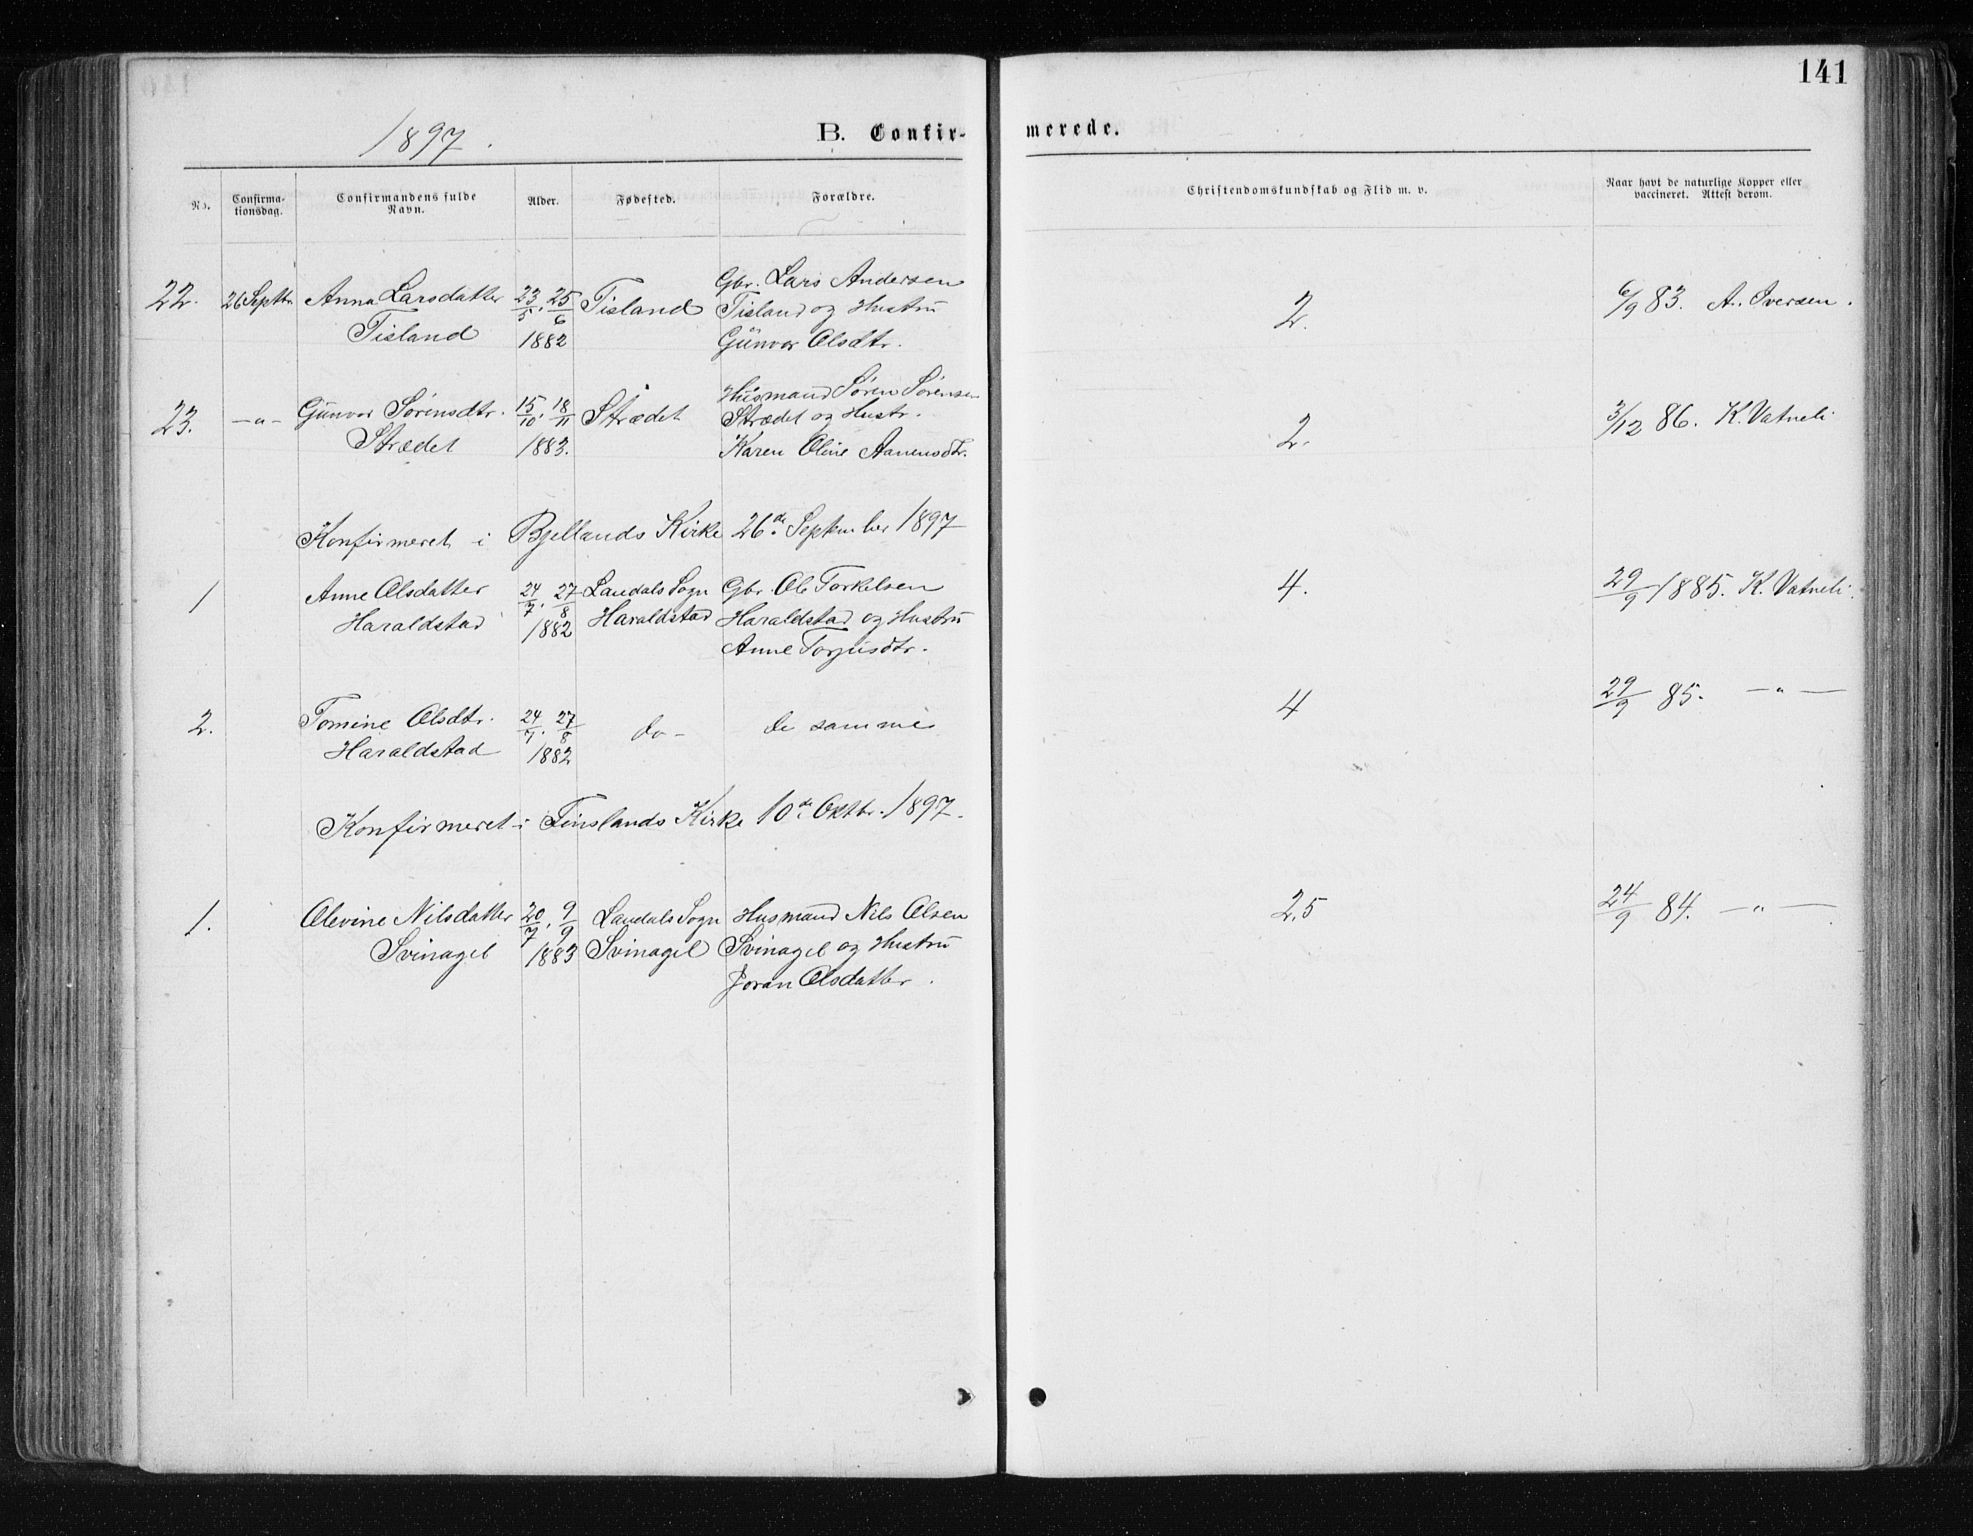 141
1897.
B. Confir- merede.
No.
Confirma-
tionsdag.
Confirmandens fulde
Navn.
Alder.
Fødested.
Forældre.
Christendomskundskab og Flid m. v.
Naar havt de naturlige Kopper eller
vaccineret. Attest derom.
22. 26 Septbr Anna Larsdatter 23/5. 25/6 Tisland Gbr. Lars Andersen 2. 6/9 83. A. Iversen.
Tisland 1882 Tisland og Hustru
Gunvor Olsdtr.
23. -"- Gunvor Sørensdtr. 15/10. 18/11 Strædet Husmand Søren Sørensen 2. 3/12 86. K. Vatneli
Strædet 1883. Strædet og Hustr.
Karen Oline Aanensdtr.
Konfirmeret i Bjellands Kirke 26de September 1897
1 Anne Olsdatter 24/7. 27/8 Laudals Sogn Gbr. Ole Torkelsen 4. 29/9 1885. K. Vatneli.
Haraldstad 1882 Haraldstad Haraldstad og Hustru
Anne Torjusdtr.
2. Tomine Olsdtr. 24/7. 27/8 do- de samme 4 29/9 85. -"-
Haraldstad 1882
Konfirmeret i Finslands Kirke 10de Oktbr. 1897.
1. Olevine Nilsdatter 20/7. 9/9 Laudals Sogn Husmand Nils Olsen 2,5 24/9 84. -"-
Svinagel 1883 Svinagel Svinagel og Hustru
Joran Olsdatter.